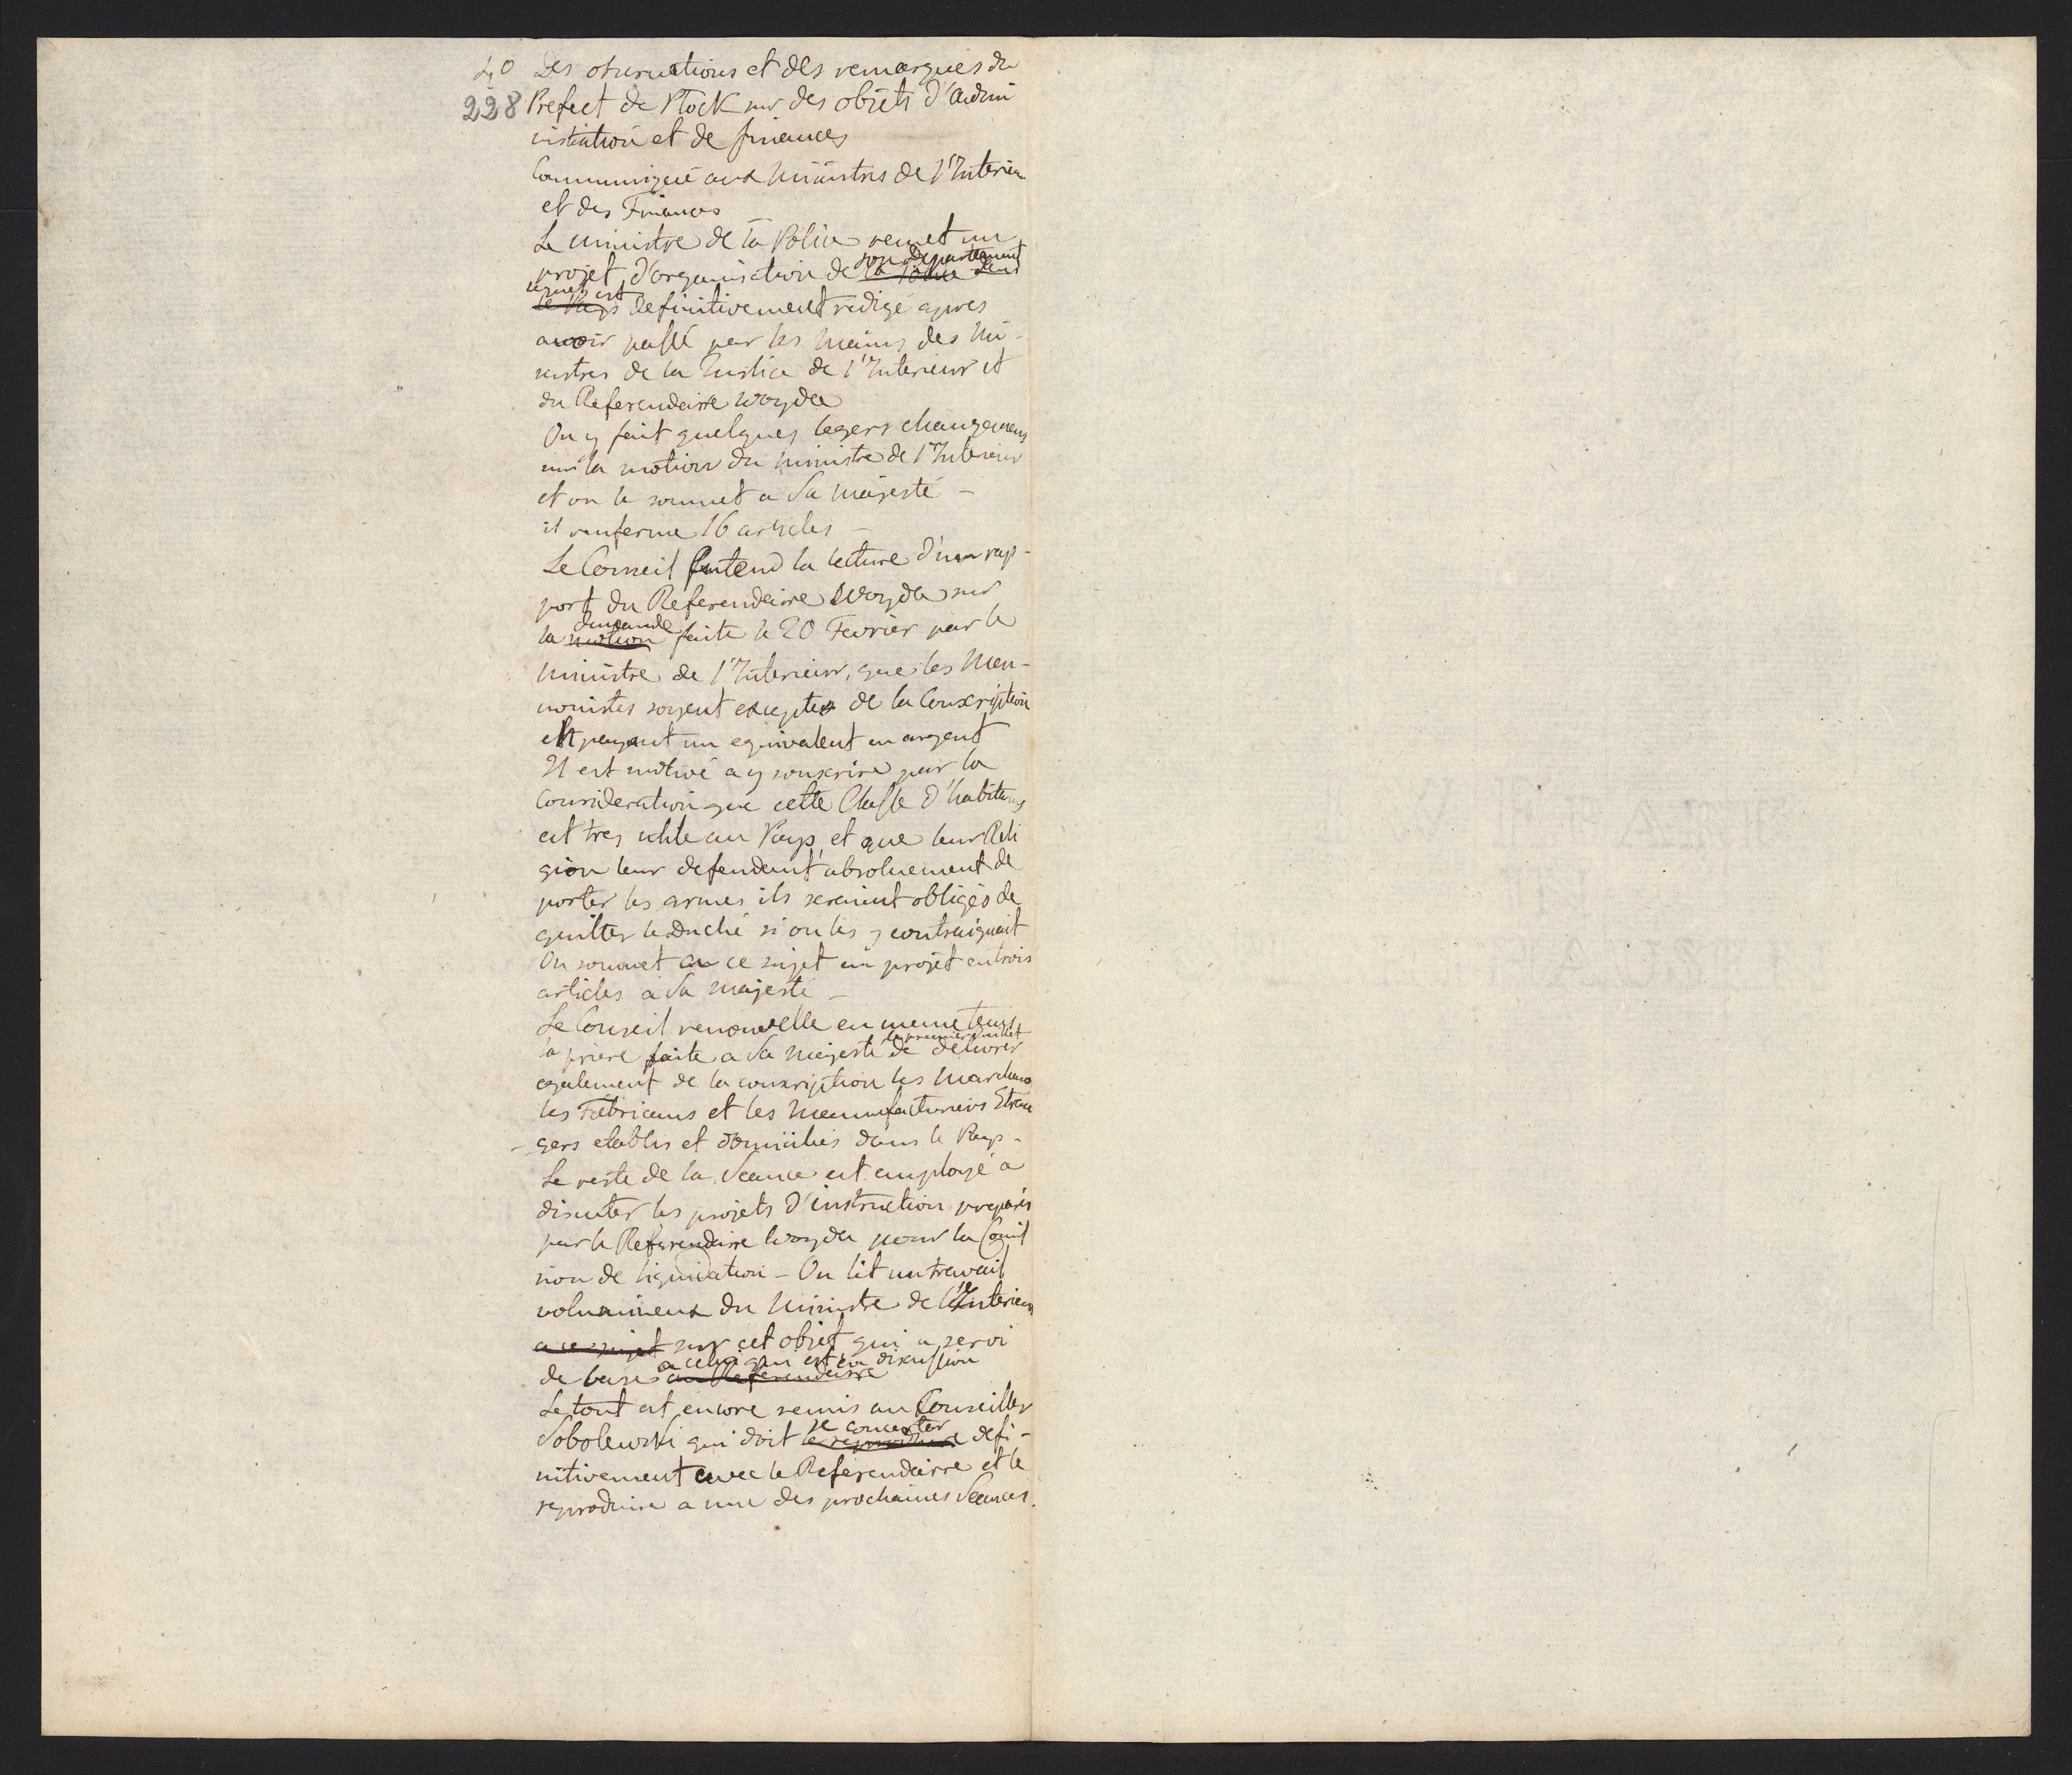 4,0 Des observations et des remarques du
228 Prefect de Plock sur des objets d'admi
nistration et de finances
Communiqué aux Ministres de l'Interieur
et des Finances
Le Ministre de la Police remet un
projet d'organisation de la Police dans son Departement
le Pays lequel est definitivement redigé apres
avoir passé par les mains des Mi-
nistres de la Justice de l'Interieur et
du Referendaire Woyda
On y fait quelques legers changemens
sur la motion du Ministre de l'Interieur
et on le soumet a Sa Majesté –
il renferme 16 articles –
Le Conseil entend la lecture d'un rap-
port du Referendaire Woyda sur
la motion demande faite le 20 Fevrier par le
Ministre de l'Interieur, que les Men-
nonistes soyent exceptes de la Conscription
en payant un equivalent en argent
Il est motivé a y souscrire par la
Consideration que cette Classe d'habitans
est tres utile au Pays, et que leur Reli
gion leur defendant absoluement de
porter les armes ils seraient obligés de
quitter le Duché si on les y contraignait
On soumet a ce sujet un projet en trois
articles a Sa Majesté –
Le Conseil renouvelle en meme tems
la priere faite a Sa Majesté le premier Juillet de delivrer
egalement de la conscription les Marchans
les Fabricans et les Manufacturiers Etran
– gers etablis et domiciliés dans le Pays –
Le reste de la Seance est employé a
discuter les projets d'instruction preparés
par le Referendaire Woyda pour la Comis
sion de liquidation – On lit un travail
volumineux du Ministre de l'Interieur
a ce sujet sur cet objet qui a servi
de base au Referendaire a celui qui est en discussion
Le tout est encore remis au Conseiller
Sobolewski qui doit le reproduire se concerter defi-
nitivement avec le Referendaire et le
reproduire a une des prochaines Seances.